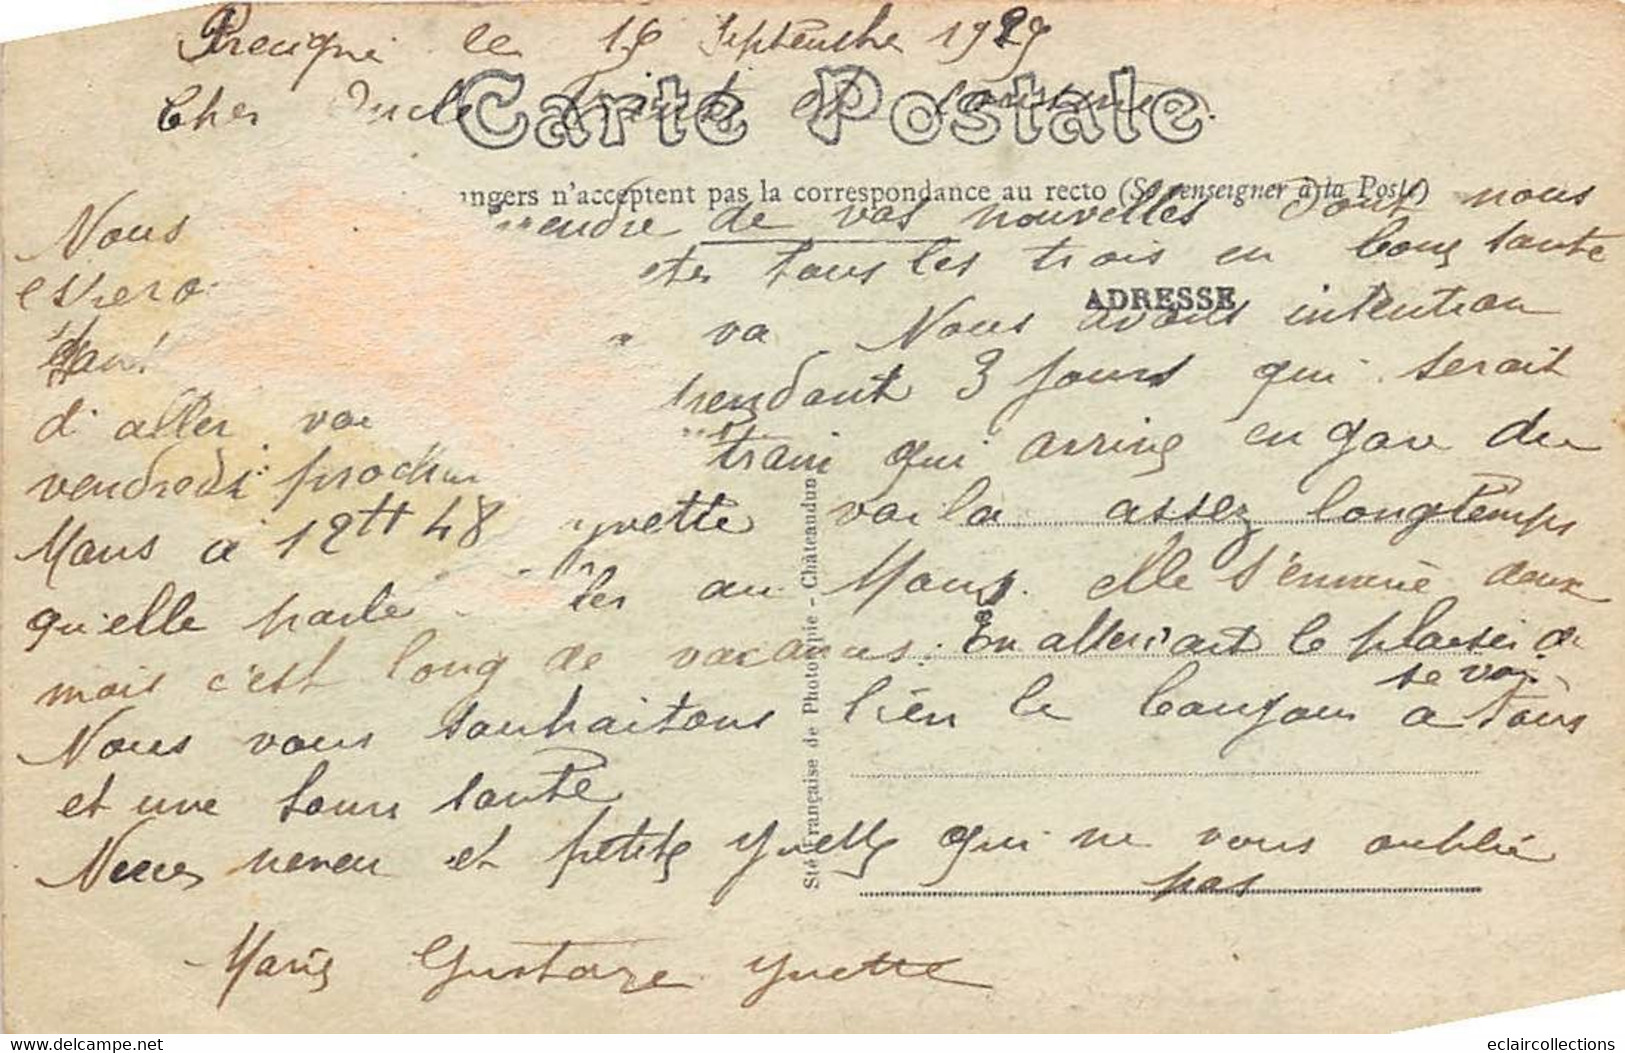 Precigné le 16 Septembre 1929
Carte Postale
Cher Oncle Tante et cousine
angers n'acceptent pas la correspondance au recto (Se renseigner à la Poste)
Nous endre de vos nouvelles Dont nous
espero etes tous les trois en bonne sante
ADRESSE
quant va Nous avons intention
d'aller voi pendant 3 jours qui serait
vendredi prochain train qui arrive en gare du
Mans a 12H 48 yvette voila assez longtemps
qu'elle parle ler au Mans. elle s'ennuie deux
mois c'est long de vacances. En attendant le plaisir de
se voir
Nous vous souhaitons bien le bonjour a tous
et une bonne santé
Nièces neveu et petite Yvette qui ne vous oublie
pas
Marie Gustave Yvette
Sté Française de Phototypie - Châteaudun
www.delcampe.net
eclaircollections